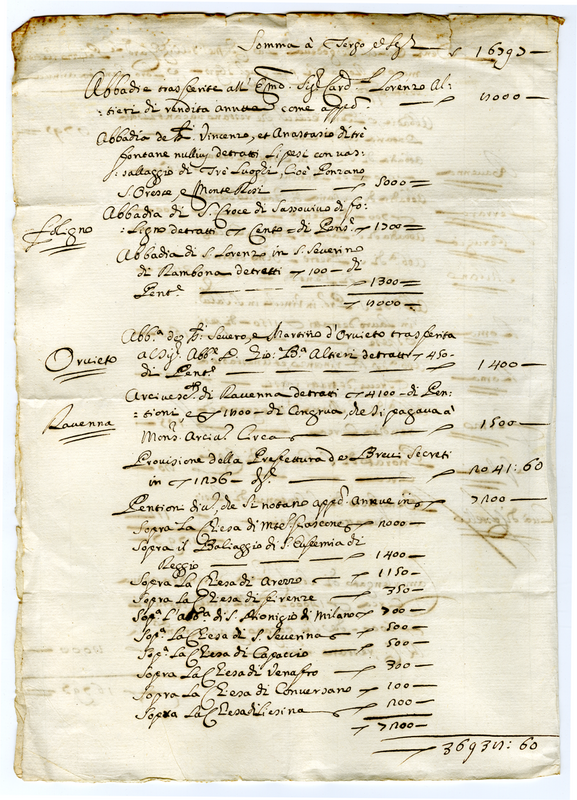 Somma à Tergo e segue 16797 —
Abbadie trasferite all' Emo Sigr Card. Lorenzo Al-
:tieri di rendita annua come appo — 8000 —
Abbadia de Sti Vincenzo, et Anastasio di trè
fontane nullius detratti li pesi con vas-
:sallaggio di Trè Luoghi, cioè Ponzano,
S. Oreste e Monte Rosi — 5000 —
Abbadia di S. Croce di Sassovivo di fo-
Foligno
:ligno detratti Cento = di Pens. 1700 =
Abbadia di S. Lorenzo in S. Severino
di Rambona detratti 100 — di
Pens. — 1300 =
8000 —
Abba de Sti Severo, e Martirio d'Orvieto trasferita
Orvieto
al Sig. Abbe D. Gio: Ba Altieri detratti 450 -
di Pens. — 1400 —
Arcivesto di Ravenna detratti 4100 — di Pen-
Ravenna
:sioni e di Congrua, che si pagava à
Monsr Arcivo Circa — 1500 —
Provisione della Prefettura de Brevi Secreti
in — 2041 : 60
Pensioni che si notano appo Annue in 7200 —
Sopra la Chiesa di Montefiascone 2000 —
Sopra il Baliaggio di S. Eufemia di
Reggio — 1400 —
Sopra la Chiesa di Arezzo — 1150 —
Sopra la Chiesa di firenze — 350 —
Sopa l'abba di S. Dionigio di Milano 700 —
Sopa la Chiesa di S. Severina 500 —
Sopa la Chiesa di Capaccio — 500 —
Sopra la Chiesa di Venafro — 300 —
Sopra la Chiesa di Conversano 100 —
Sopra la Chiesa di Lesina — 200 —
7200 —
36938 : 60